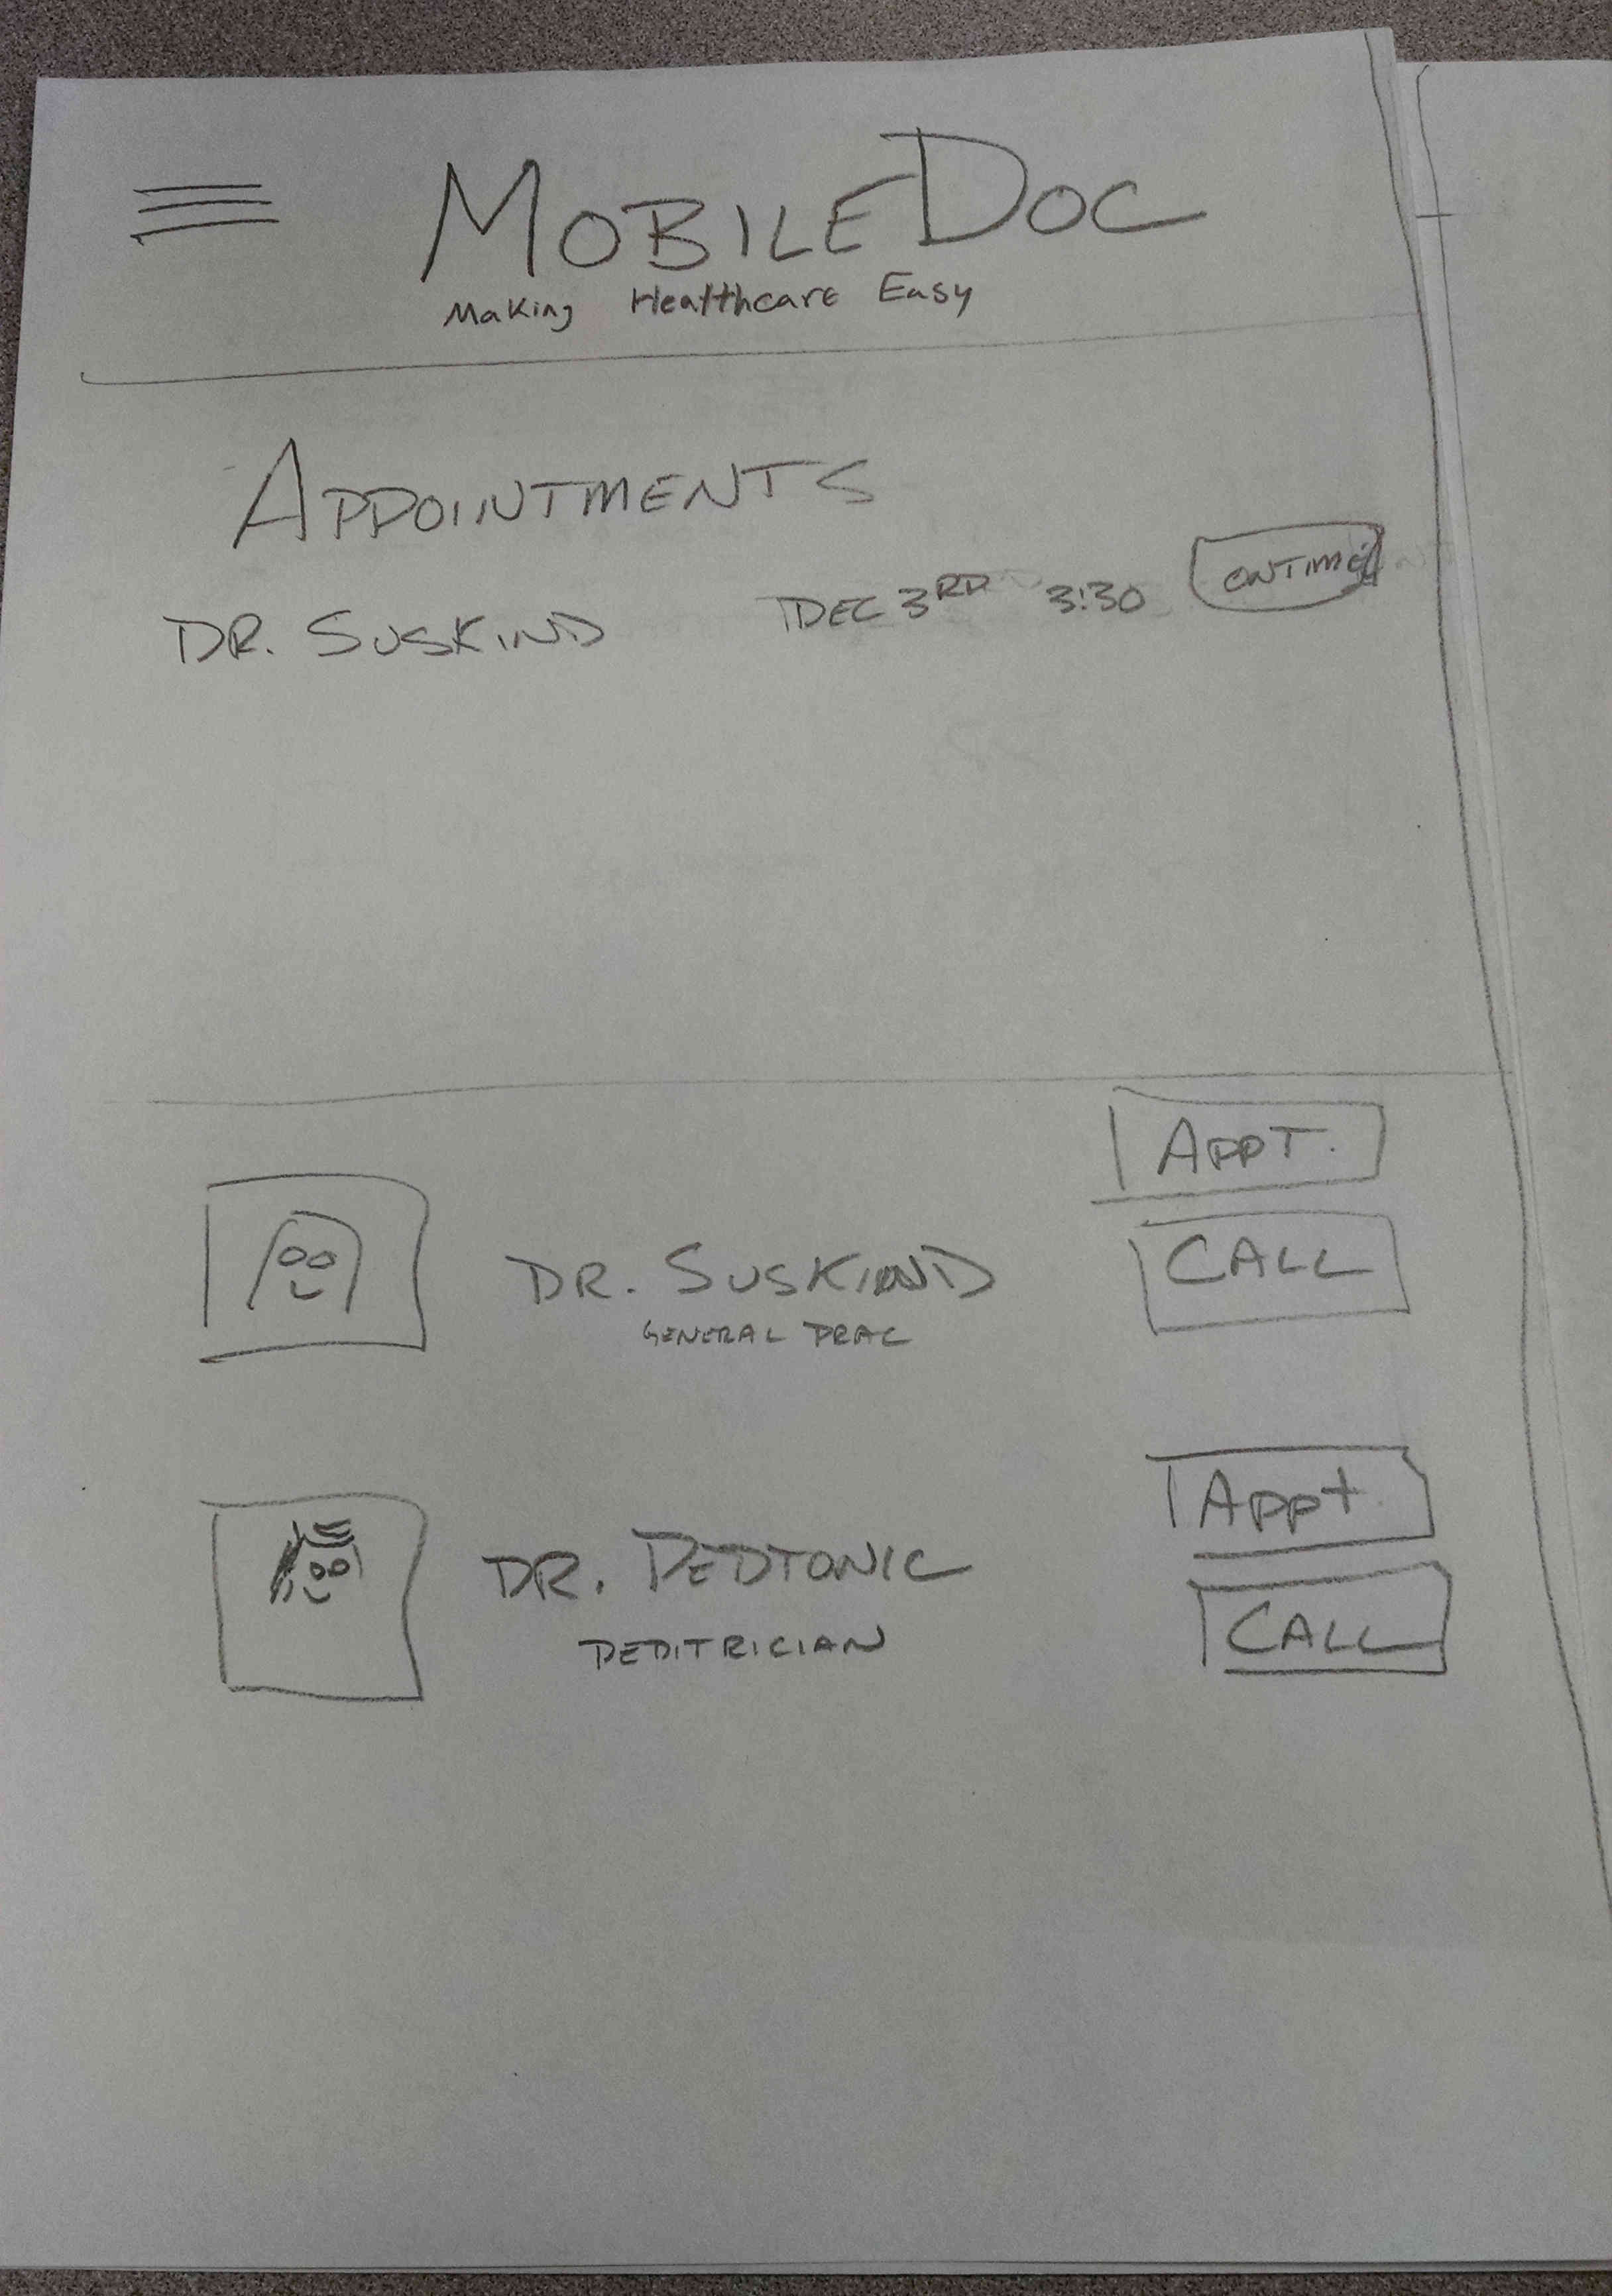 MOBILEDOC
Making Healthcare Easy
APPOINTMENTS
DR. SUSKIND DEC 3RD 3:30 ONTIME
APPT.
CALL
DR. SUSKIND
GENERAL PRAC
APPt
CALL
DR. PEDTONIC
PEDITRICIAN